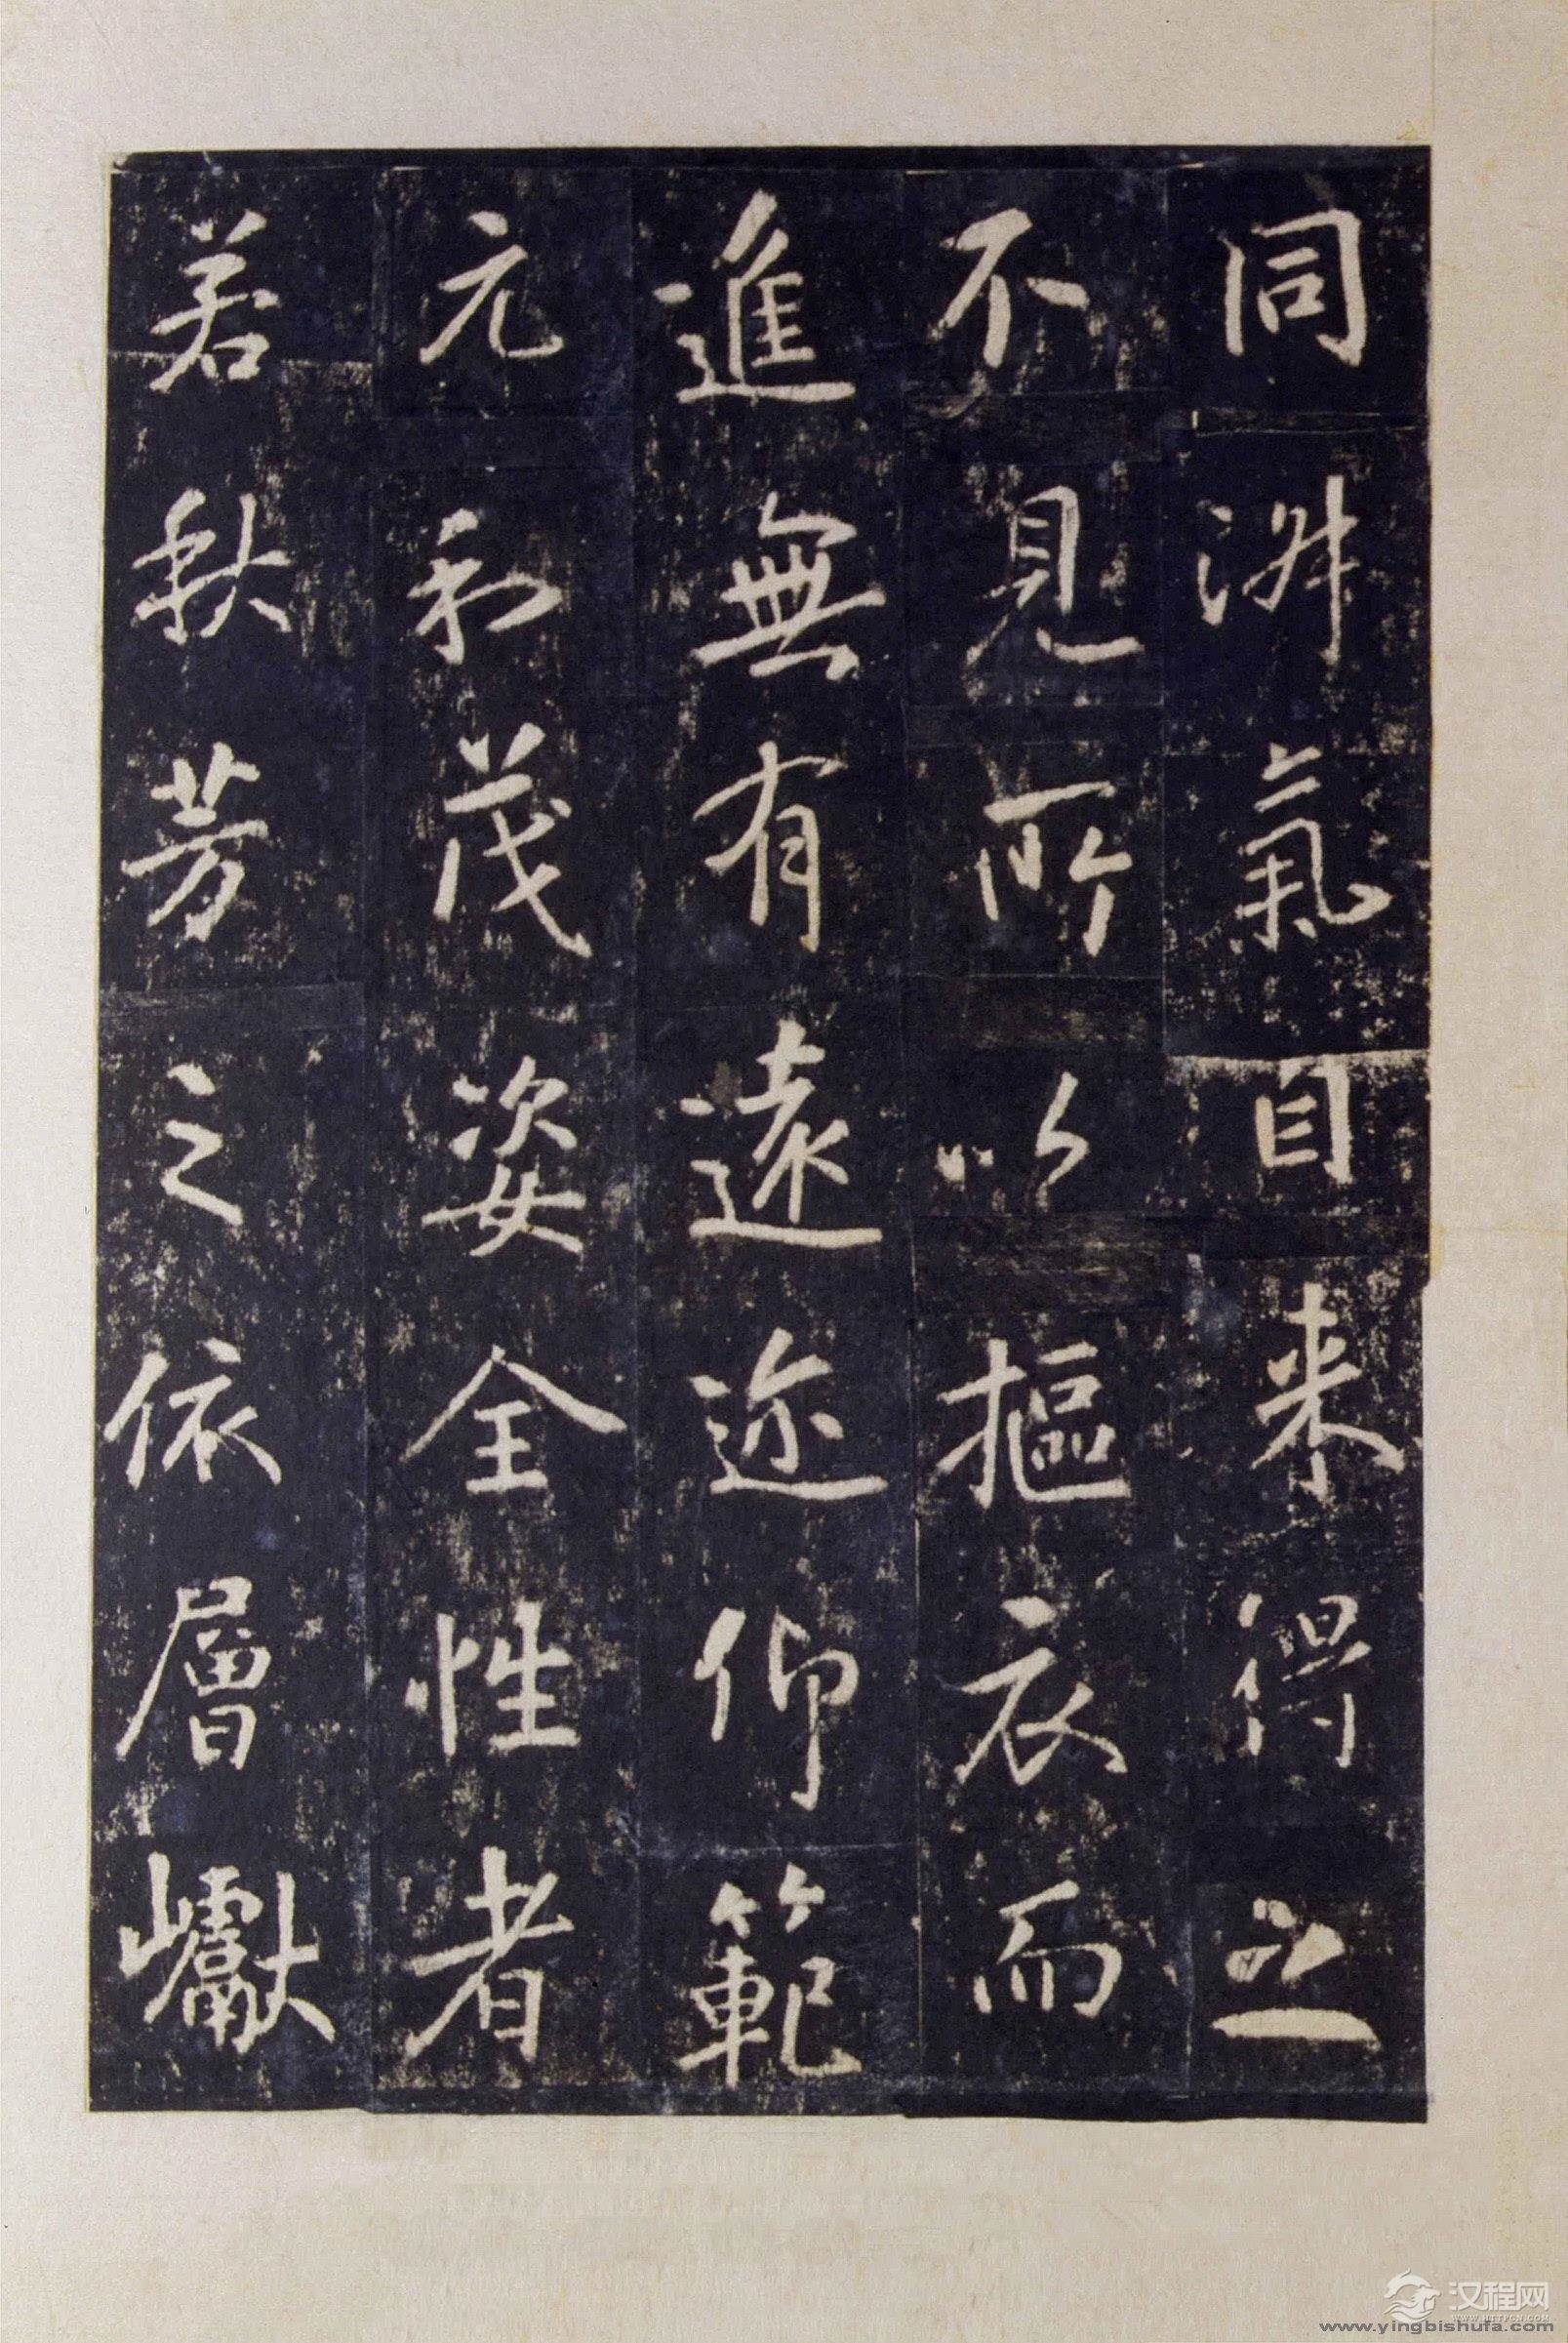 同淵氣自来得之
不見所以摳衣而
進無有遠近仰範
元和茂姿全性者
若秋芳之依層巘
汉程网
WWW.HTTPCN.COM
www.yingbishufa.com